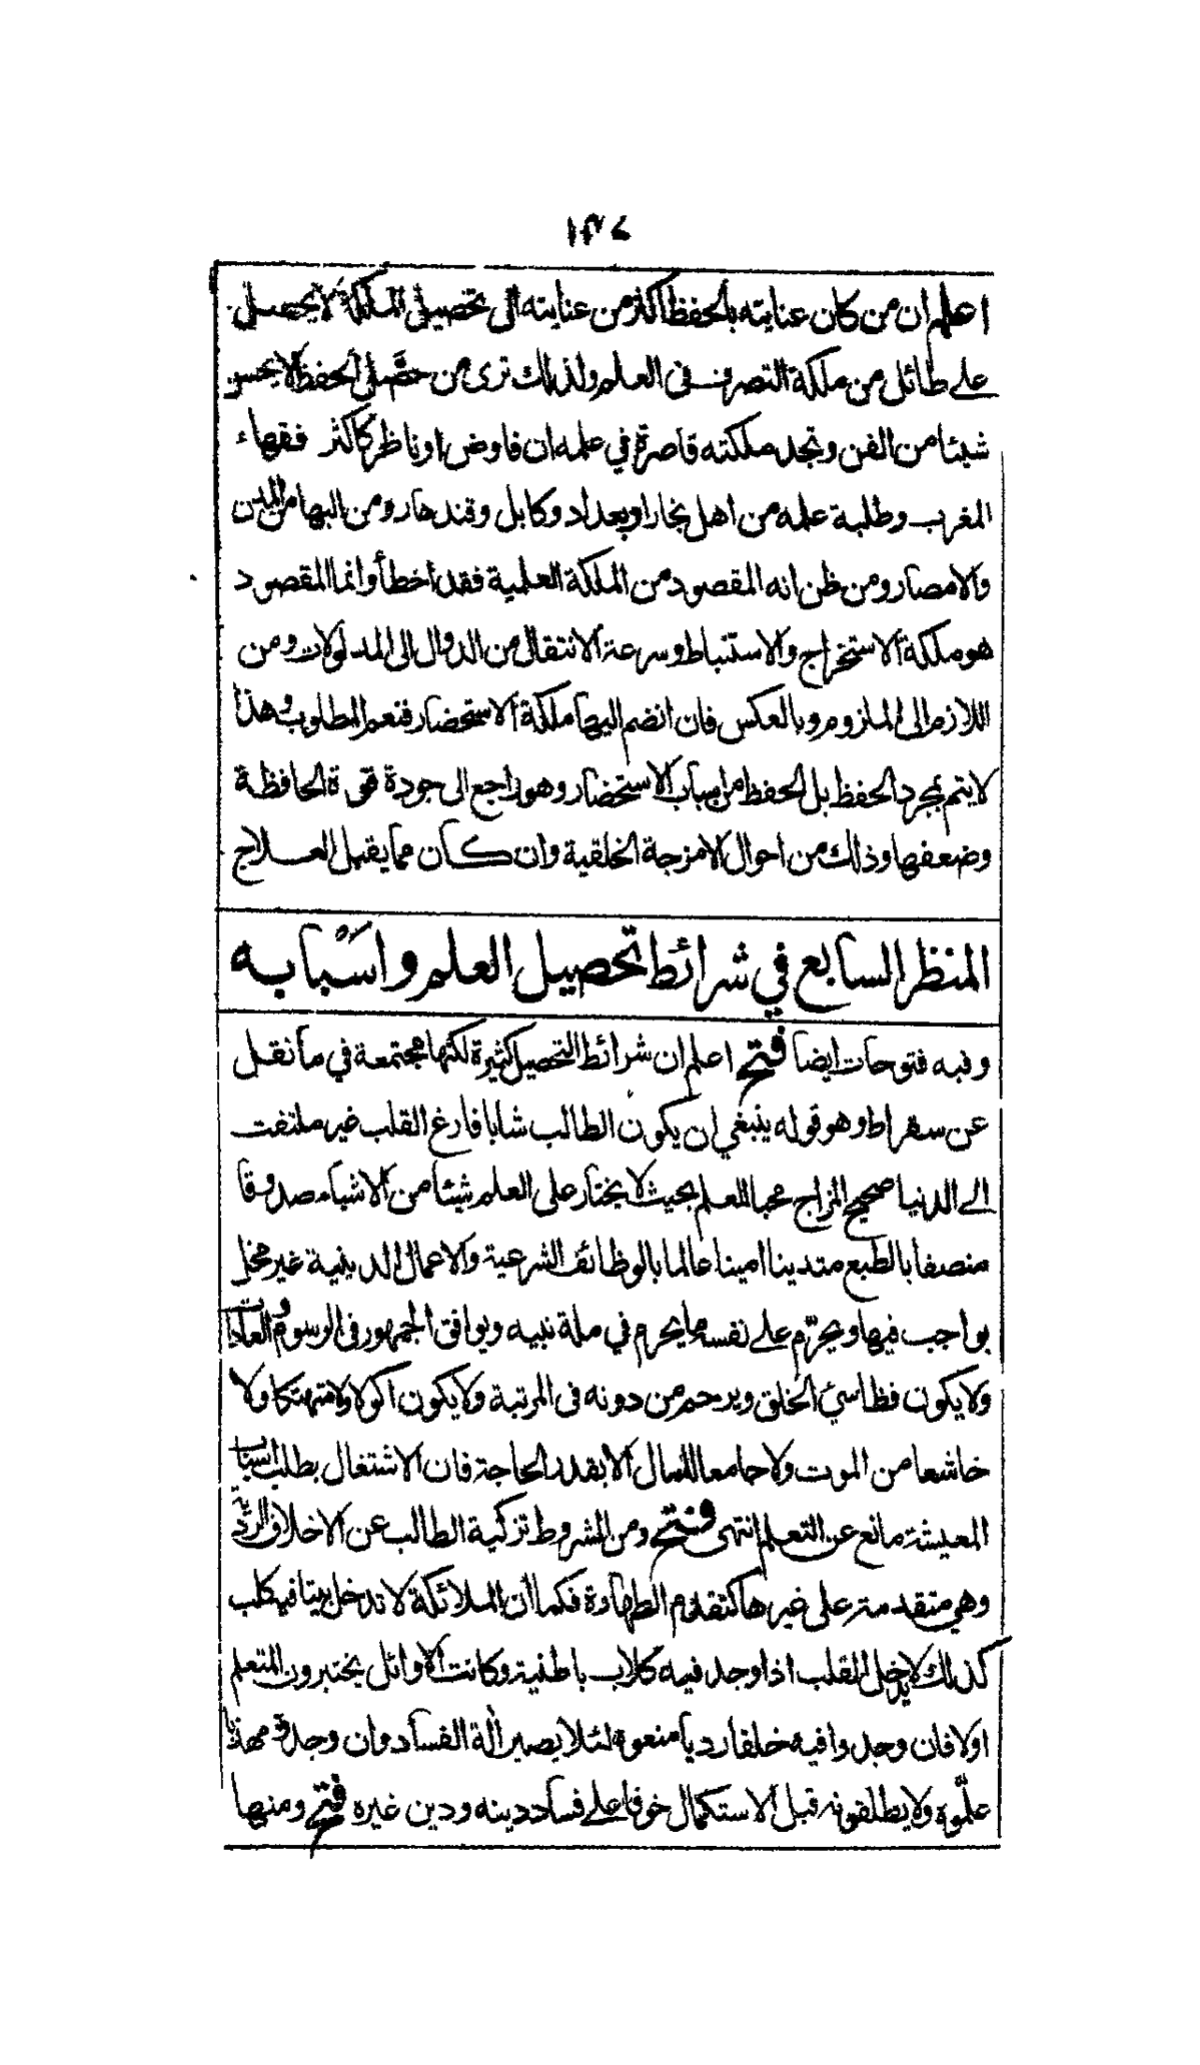 ١٣٤
اعلم ان من كان عنايته بالحفظ اكثر من عنايته الى تحصيل الملكة لا يحصل
على طائل من ملكة التصرف في العلم ولذلك ترى من حصّل الحفظ لا يحسن
شيئا من الفن وتجد ملكته قاصرة في علمه ان فاوض او ناظر كاكثر فقهاء
المغرب وطلبة علمه من اهل بخارا وبغداد وكابل وقندهار ومن اليها من المدن
والامصار ومن ظن انه المقصود من الملكة العلمية فقد اخطأ وانما المقصود
هو ملكة الاستخراج والاستنباط وسرعة الانتقال من الدوال الى المدلولات ومن
اللازم الى الملزوم وبالعكس فان انضم اليها ملكة الاستحضار فنعم المطلوب وهذا
لا يتم بمجرد الحفظ بل الحفظ من اسباب الاستحضار وهو راجع الى جودة قوة الحافظة
وضعفها وذلك من احوال الامزجة الخلقية وان كان مما يقبل العلاج
المنظر السابع في شرائط تحصيل العلم واسبابه
وفيه فتوحات ايضا فتح اعلم ان شرائط التحصيل كثيرة لكنها مجتمعة في ما نقل
عن سقراط وهو قوله ينبغي ان يكون الطالب شابا فارغ القلب غير ملتفت
الى الدنيا صحيح المزاج محبا للعلم بحيث لا يختار على العلم شيئا من الاشياء صدوقا
منصفا بالطبع متدينا امينا عالما بالوظائف الشرعية والاعمال الدينية غير مخل
بواجب فيها ويحرّم على نفسه ما يحرم في ملة نبيه ويوافق الجمهور في الرسوم والعادات
ولا يكون فظا سيئ الخلق ويرحم من دونه في المرتبة ولا يكون اكولا ولا متهتكا ولا
خاشعا من الموت ولا جامعا للمال الا بقدر الحاجة فان الاشتغال بطلب اسباب
المعيشة مانع عن التعلم انتهى فتح ومن الشروط تزكية الطالب عن الاخلاق الردية
وهي متقدمة على غيرها كتقدم الطهارة فكما ان الملائكة لا تدخل بيتا فيه كلب
كذلك لا يدخل القلب اذا وجد فيه كلاب باطنية وكانت الاوائل يختبرون المتعلم
اولا فان وجدوا فيه خلقا رديا منعوه لئلا يصير آلة الفساد وان وجدوه مهذبا
علّموه ولا يطلقونه قبل الاستكمال خوفا على فساد دينه ودين غيره فتح ومنها